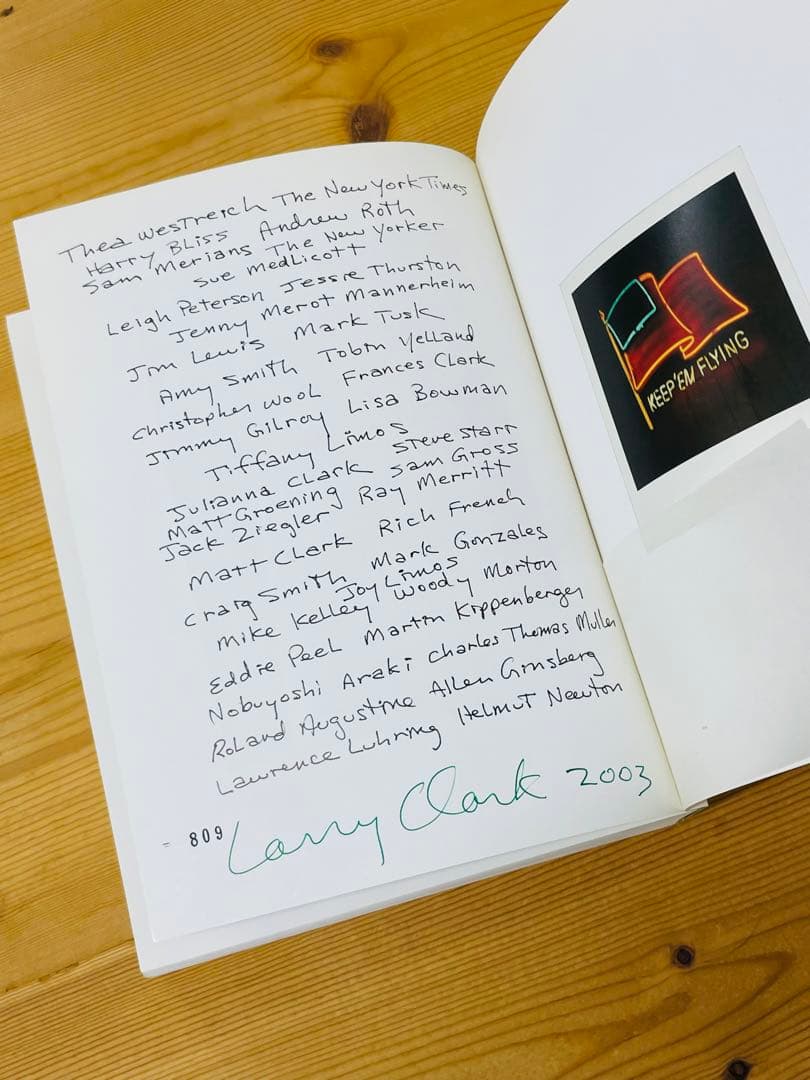 Thea Westreich The New York Times
Harry Bliss Andrew Roth
Sam Merians The New Yorker
Sue Medlicott
Leigh Peterson Jessie Thurston
Jenny Merot Mannerheim
Jim Lewis Mark Tusk
Amy Smith Tobin Yelland
Christopher Wool Frances Clark
Jimmy Gilroy Lisa Bowman
Tiffany Limos
Julianna Clark Steve Starr
Matt Groening Sam Gross
Jack Ziegler Ray Merritt
Matt Clark Rich French
Craig Smith Mark Gonzales
Joy Limos
Mike Kelley Woody Morton
Eddie Peel Martin Kippenberger
Nobuyoshi Araki Charles Thomas Mullen
Roland Augustine Allen Ginsberg
Lawrence Luhring Helmut Newton
809 Larry Clark 2003
KEEP'EM FLYING